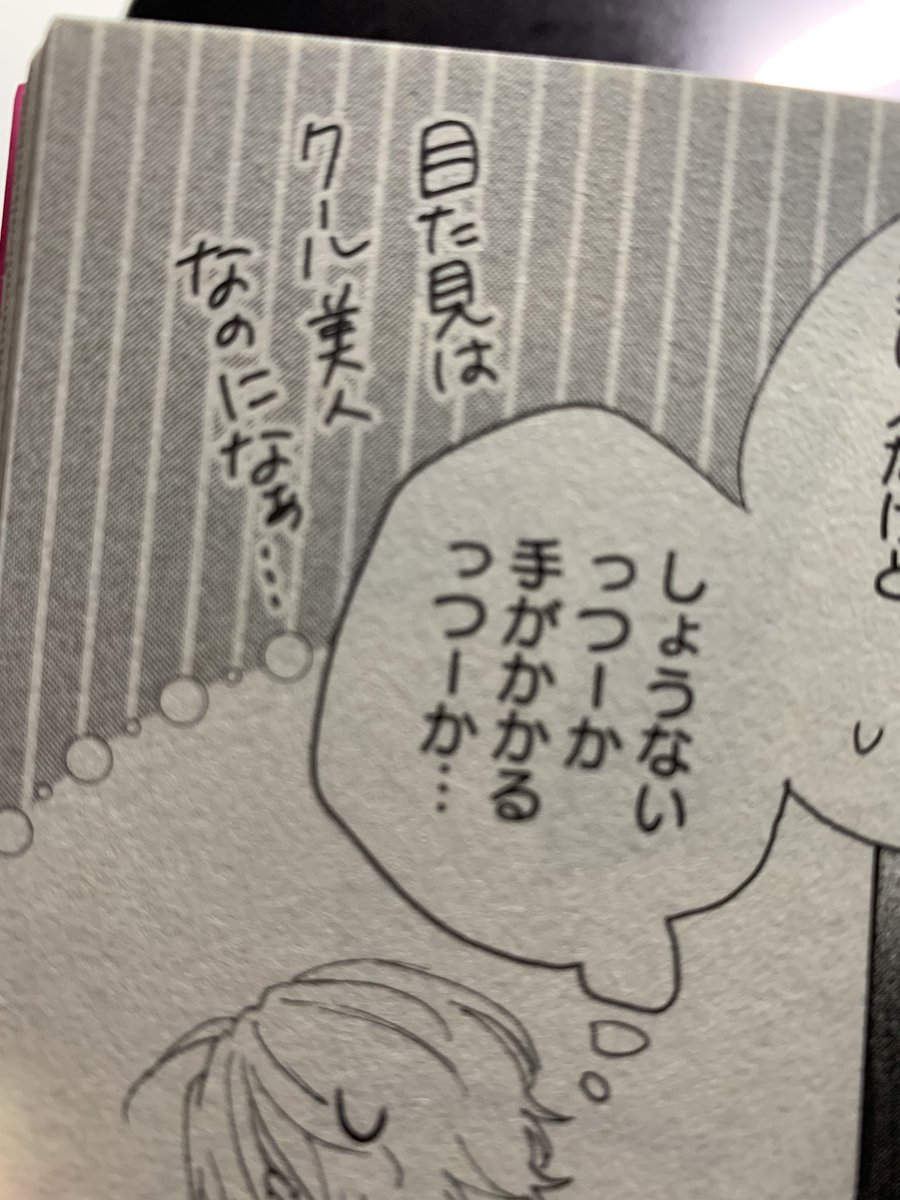 だけど
しょうない
っつーか
手がかかる
っつーか…
目た見は
クール美人
なのになぁ…